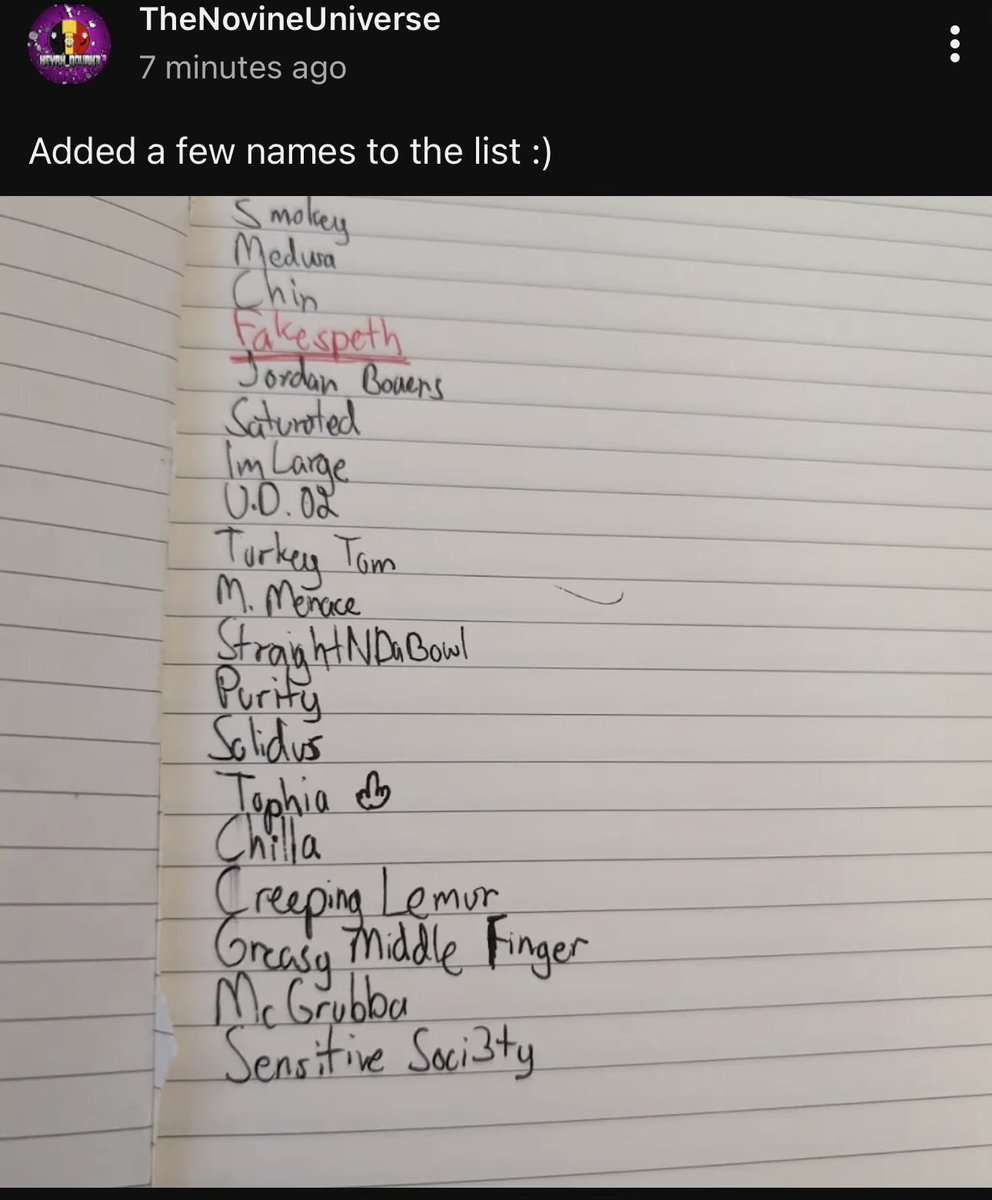 TheNovineUniverse
7 minutes ago
Added a few names to the list :)
Smokey
Medusa
Chin
Fakespeth
Jordan Bowers
Saturated
Im Large
U.D. 02
Turkey Tom
M. Menace
StraightNDaBowl
Purity
Solidus
Tophia
Chilla
Creeping Lemur
Greasy Middle Finger
McGrubba
Sensitive Soci3ty